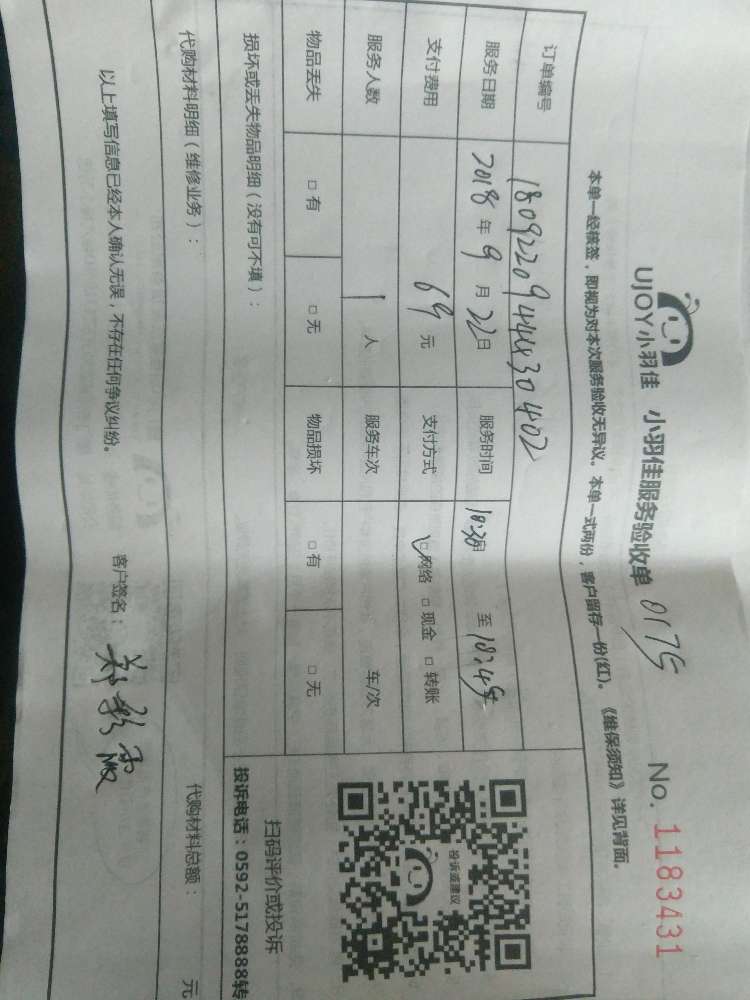 UJOY小羽佳 小羽佳服务验收单 0175 No. 1183431
本单一经核签，即视为对本次服务验收无异议。本单一式两份，客户留存一份(红)。《维保须知》详见背面。
订单编号 18092209444830402
服务日期 2018 年 9 月 22 日 服务时间 至
支付费用 69 元 支付方式 ☑ 网络 □ 现金 □ 转账
服务人数 1 人 服务车次 车/次
物品丢失 □ 有 □ 无 物品损坏 □ 有 □ 无
投诉或建议
损坏或丢失物品明细（没有可不填）：
扫码评价或投诉
投诉电话：0592-5178888转
代购材料明细（维修业务）： 代购材料总额： 元
以上填写信息已经本人确认无误，不存在任何争议纠纷。 客户签名：